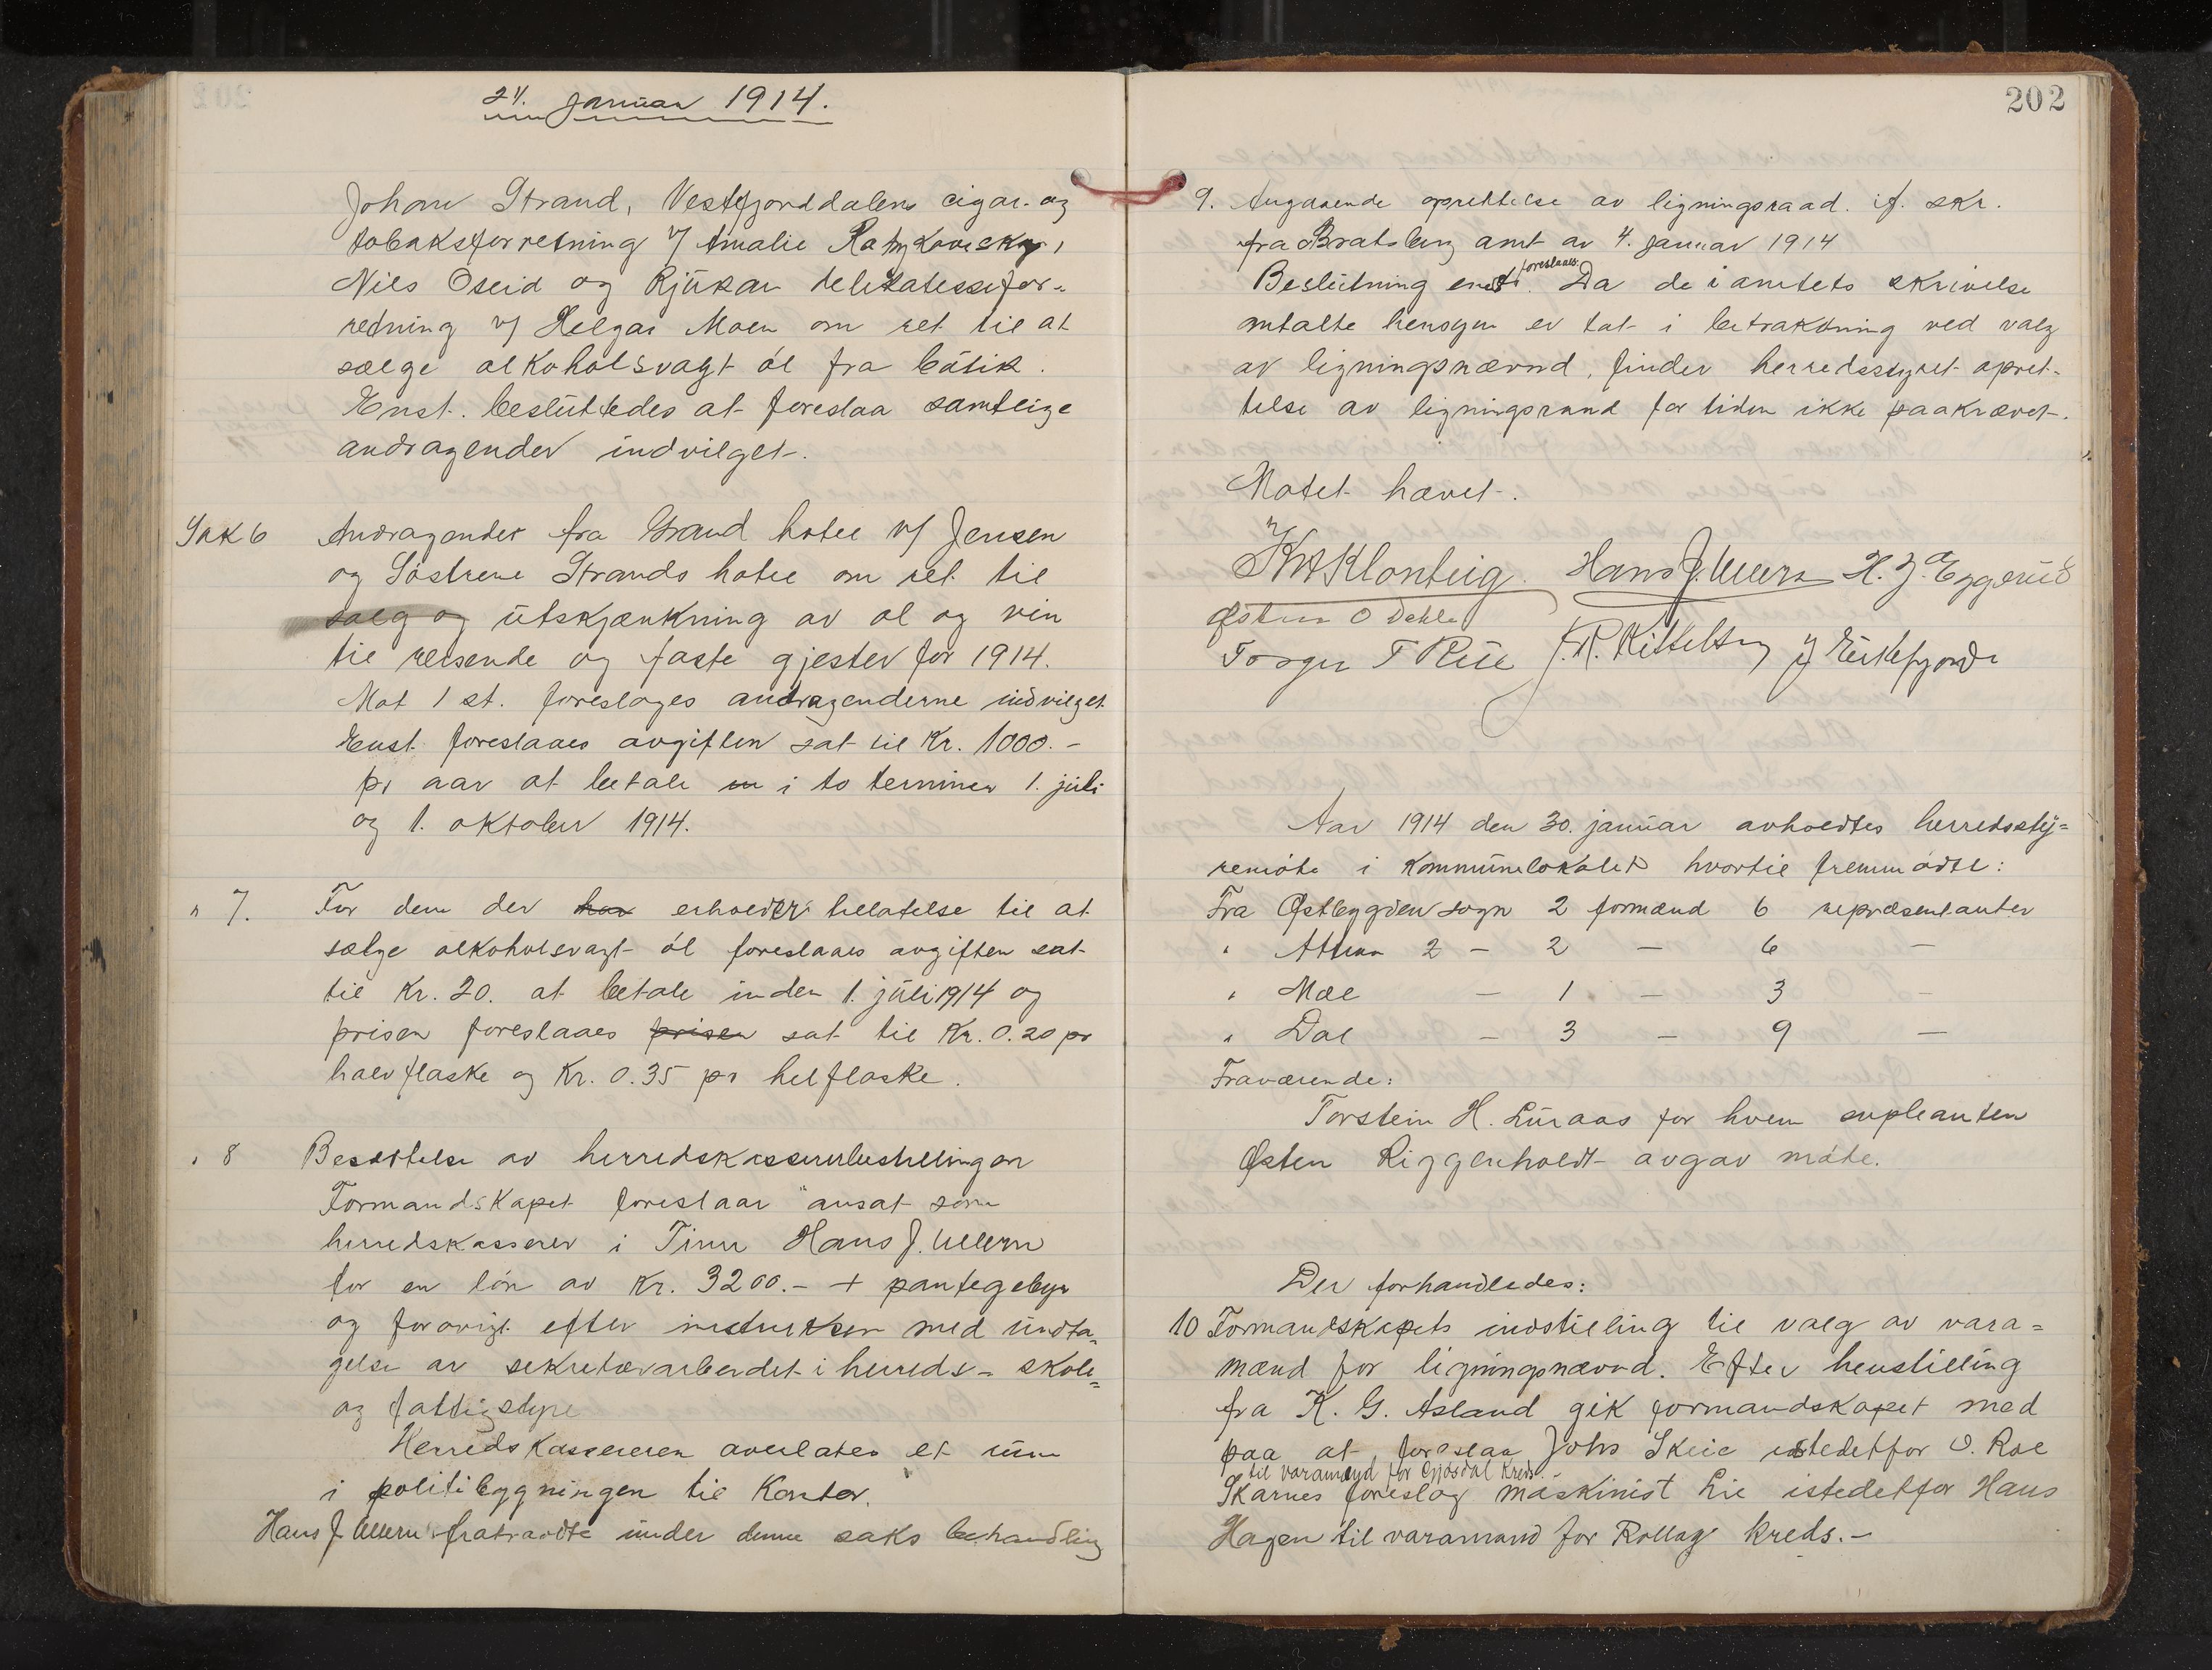 24. januar 1914.
Johan Strand, Vestfjorddalens cigar- og
tobaksforretning v/ Amalie
Niels Öseid og Rjukan delikatessefor-
retning v/ Helgar Moen om ret til at
sælge alkoholsvagt öl fra butik.
Enst. besluttedes at foreslaa samtlige
andragender indvilget.
Sak 6 Andragender fra Grand hotel v/ Jensen
og Söstrene Strands hotel om ret til
salg og utskjænkning av öl og vin
til reisende og faste gjester for 1914.
Mot 1 st. foresloges andragenderne indvilget
Enst. foreslaaes avgiften sat til Kr. 1000.-
pr aar at betale i to terminer 1. juli
og 1. oktober 1914.
" 7. For dem der har erholder tillatelse til at
sælge alkoholsvagt öl foreslaaes avgiften sat
til Kr. 20. at betale inden 1. juli 1914 og
prisen foreslaaes prisen sat til Kr. 0.20 pr
halvflaske og Kr. 0.35 pr helflaske.
" 8 Besættelse av herredskassererbestillingen
Formandskapet foreslaar ansat som
herredskasserer i Tinn Hans J. Ullern
for en lön av Kr. 3200.- + pantegebyr
og forövrigt efter instruksen med undta-
gelse av sekretærarbeidet i herreds- skole=
og fattigstyre
Herredskassereren averlates et rum
i politibygningen til Kontor.
Hans J. Ullern fratraadte under denne saks behandling
202
9. Angaaende oprettelse av ligningsraad. if. skr.
fra Bratsberg amt av 4. januar 1914
foreslaaes:
Beslutning enst. Da de i amtets skrivelse
omtalte hensyn er tat i betraktning ved valg
av ligningsnævnd, finder herredsstyret opret-
telse av ligningsraad for tiden ikke paakrævet.
Mötet hævet.
Kn Klonteig. Hans J. Ullern H. J. Eggerud
Østen O Dahle
Torger T Rue J. R. Kittelsen J Eikefjord
Aar 1914 den 30. januar avholdtes herredssty=
remöte i Kommunelokalet hvortil fremmödte:
Fra Østbygden sogn 2 formænd 6 repræsentanter
" Attraa 2 - 2 - 6 -
" Mæl - 1 - 3 -
" Dal - 3 - 9 -
Fraværende:
Torstein H. Luraas for hvem supleanten
Østen Riggenholdt avgav möte.
Der forhandledes:
10 Formandskapets indstilling til valg av vara=
mænd for ligningsnævnd. Efter henstilling
fra K. G. Asland gik formandskapet med
paa at foreslaa Johs Skeie istedetfor O. Roe
til varamand for Gjösdal Kreds.-
Skarnes foreslog maskinist Lie istedetfor Hans
Hagen til varamand for Rollag kreds.-